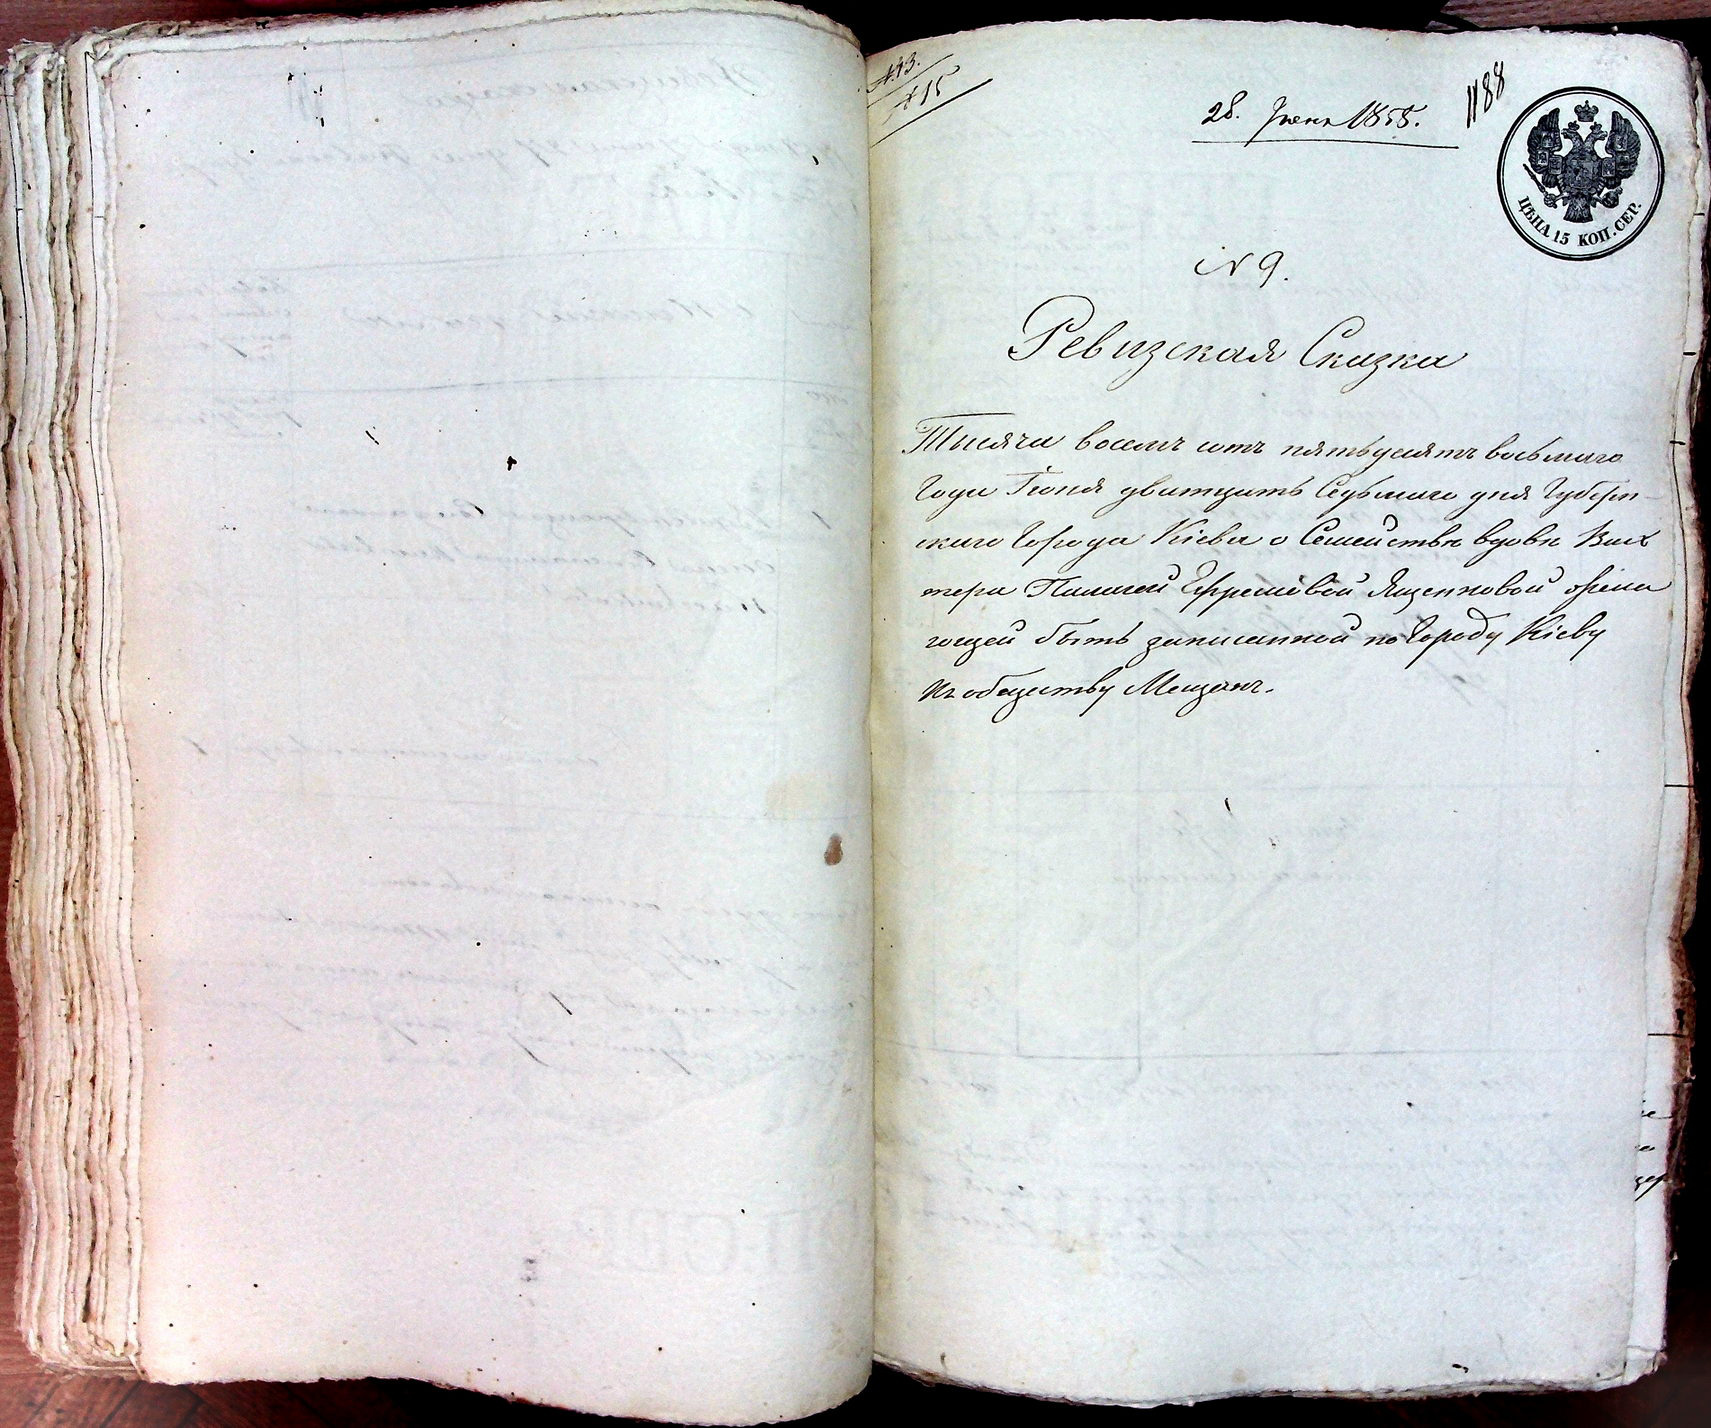 № 43.
№ 15
28. Июня 1858.
1188
ЦѢНА 15 КОП. СЕР.
№ 9.
Ревизская Сказка
Тысяча восемь сотъ пятьдесятъ восьмаго
Года Іюня дватцать Седьмаго дня Губерн-
скаго Города Кіева о Семействѣ вдовы Вах
тера Пелагеи Ефремовой Яценковой жела
ющей быть записанной по Городу Кіеву
въ общество Мещанъ.